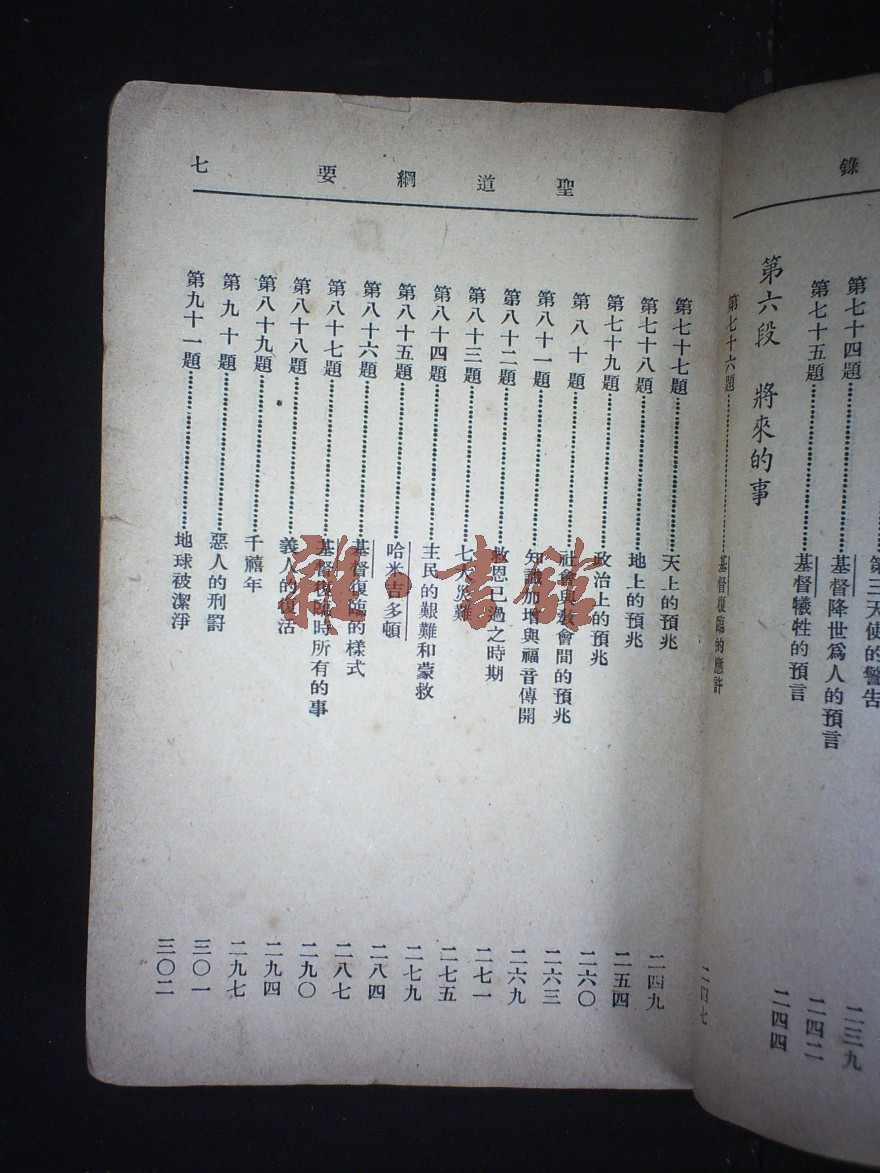 錄
第三天使的警告 二三九
第七十四題……基督降世爲人的預言 二四二
第七十五題……基督犧牲的預言 二四四
第六段 將來的事
第七十六題……基督復臨的應許 二四七
聖道綱要 七
第七十七題……天上的預兆 二四九
第七十八題……地上的預兆 二五四
第七十九題……政治上的預兆 二六〇
第八十題……社會與教會間的預兆 二六三
第八十一題……知識加增與福音傳開 二六九
第八十二題……救恩已過之時期 二七一
第八十三題……七大災難 二七五
第八十四題……主民的艱難和蒙救 二七九
第八十五題……哈米吉多頓 二八四
第八十六題……基督復臨的樣式 二八七
第八十七題……基督復臨時所有的事 二九〇
第八十八題……義人的復活 二九四
第八十九題……千禧年 二九七
第九十題……惡人的刑罰 三〇一
第九十一題……地球被潔淨 三〇二
雜·書館